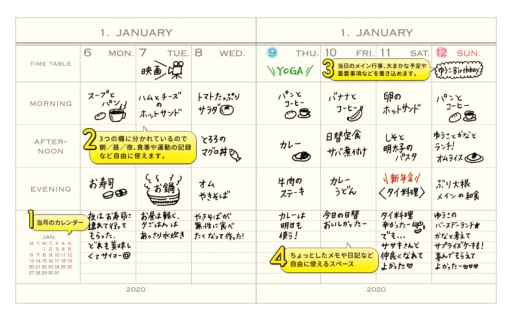 1. JANUARY
6 MON. 7 TUE. 8 WED.
TIME TABLE
映画
MORNING
スープと
パン
ハムとチーズ
の
ホットサンド
トマトたっぷり
サラダ
2 3つの欄に分かれているので
朝／昼／夜、食事や運動の記録
など自由に使えます。
AFTER-
NOON
とろろの
マグロ丼
EVENING
お寿司
お鍋
オム
やきそば
1 当月のカレンダー
JAN.
M T W T F S S
1 2 3 4 5
6 7 8 9 10 11 12
13 14 15 16 17 18 19
20 21 22 23 24 25 26
27 28 29 30 31
夜はお寿司に
連れて行って
もらった。
どれも美味し
くてサイコー
お昼は軽く、
夕ごはんは
あっさり水炊き
やきそばが
無性に食べ
たくなって作った!
2020
1. JANUARY
9 THU. 10 FRI. 11 SAT. 12 SUN.
YOGA
3 当日のメイン行事、大まかな予定や
重要事項などを書き込めます。
ゆうこBirthday
パンと
コーヒー
バナナと
コーヒー
卵の
ホットサンド
パンと
コーヒー
カレー
日替定食
サバ煮付け
しそと
明太子の
パスタ
ゆうことかなと
ランチ!
オムライス
牛肉の
ステーキ
カレー
うどん
新年会
〈タイ料理〉
ぶり大根
メインの和食
カレーは
明日も
使う!
今日の日替
おいしかったー
タイ料理
辛かったー
でも…
ササキさんと
仲良くなれて
よかった
ゆうこの
バースデーランチ★
かなと考えて
サプライズケーキ!
喜んでもらえて
よかったー
4 ちょっとしたメモや日記など
自由に使えるスペース
2020